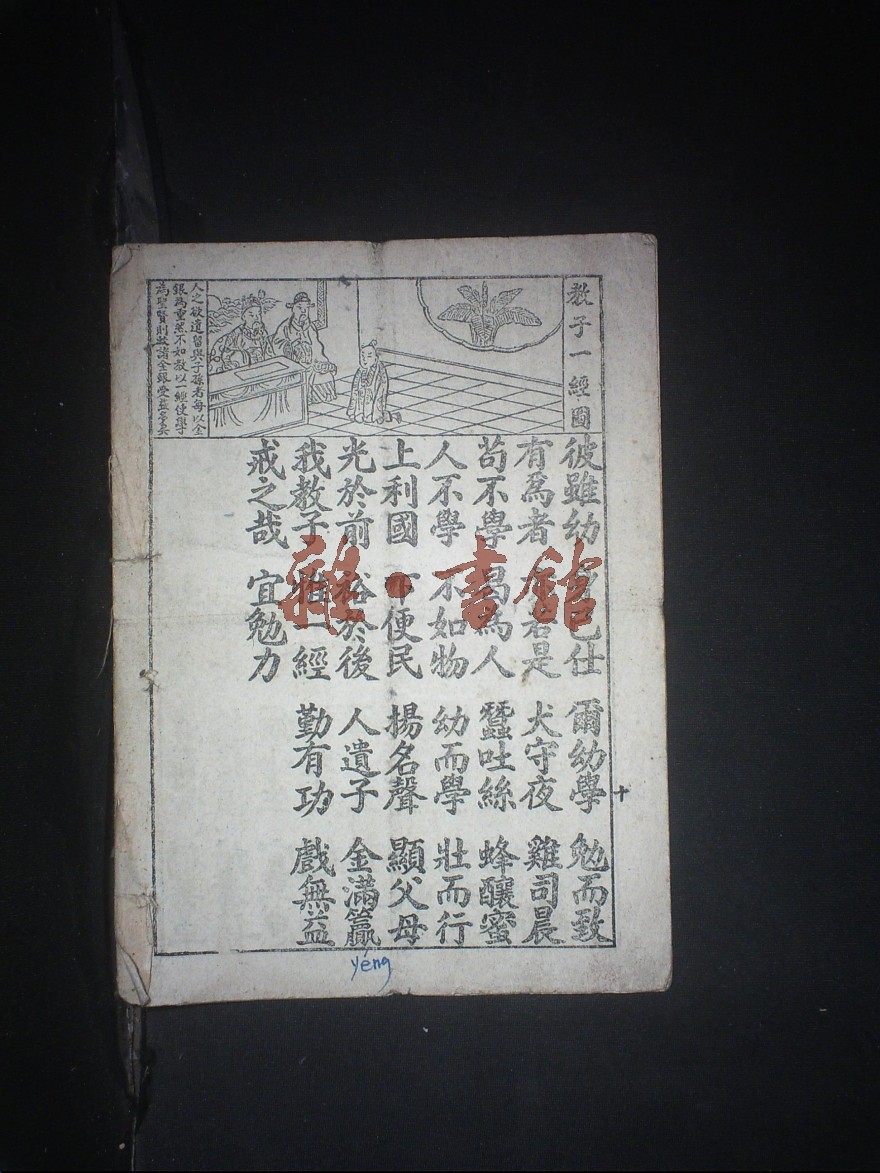 教子一經圖
人之欲遺留與子孫者每以金
銀為重然不如教以一經使學子
為聖賢則較諸金銀受益多矣
彼雖幼 身己仕 爾幼學 勉而致
有爲者 亦若是 犬守夜 雞司晨
苟不學 曷為人 蠶吐絲 蜂釀蜜
人不學 不如物 幼而學 壯而行
上利國 下便民 揚名聲 顯父母
光於前 裕於後 人遺子 金滿籯
我教子 惟一經 勤有功 戲無益
戒之哉 宜勉力
yéng
雜·書館